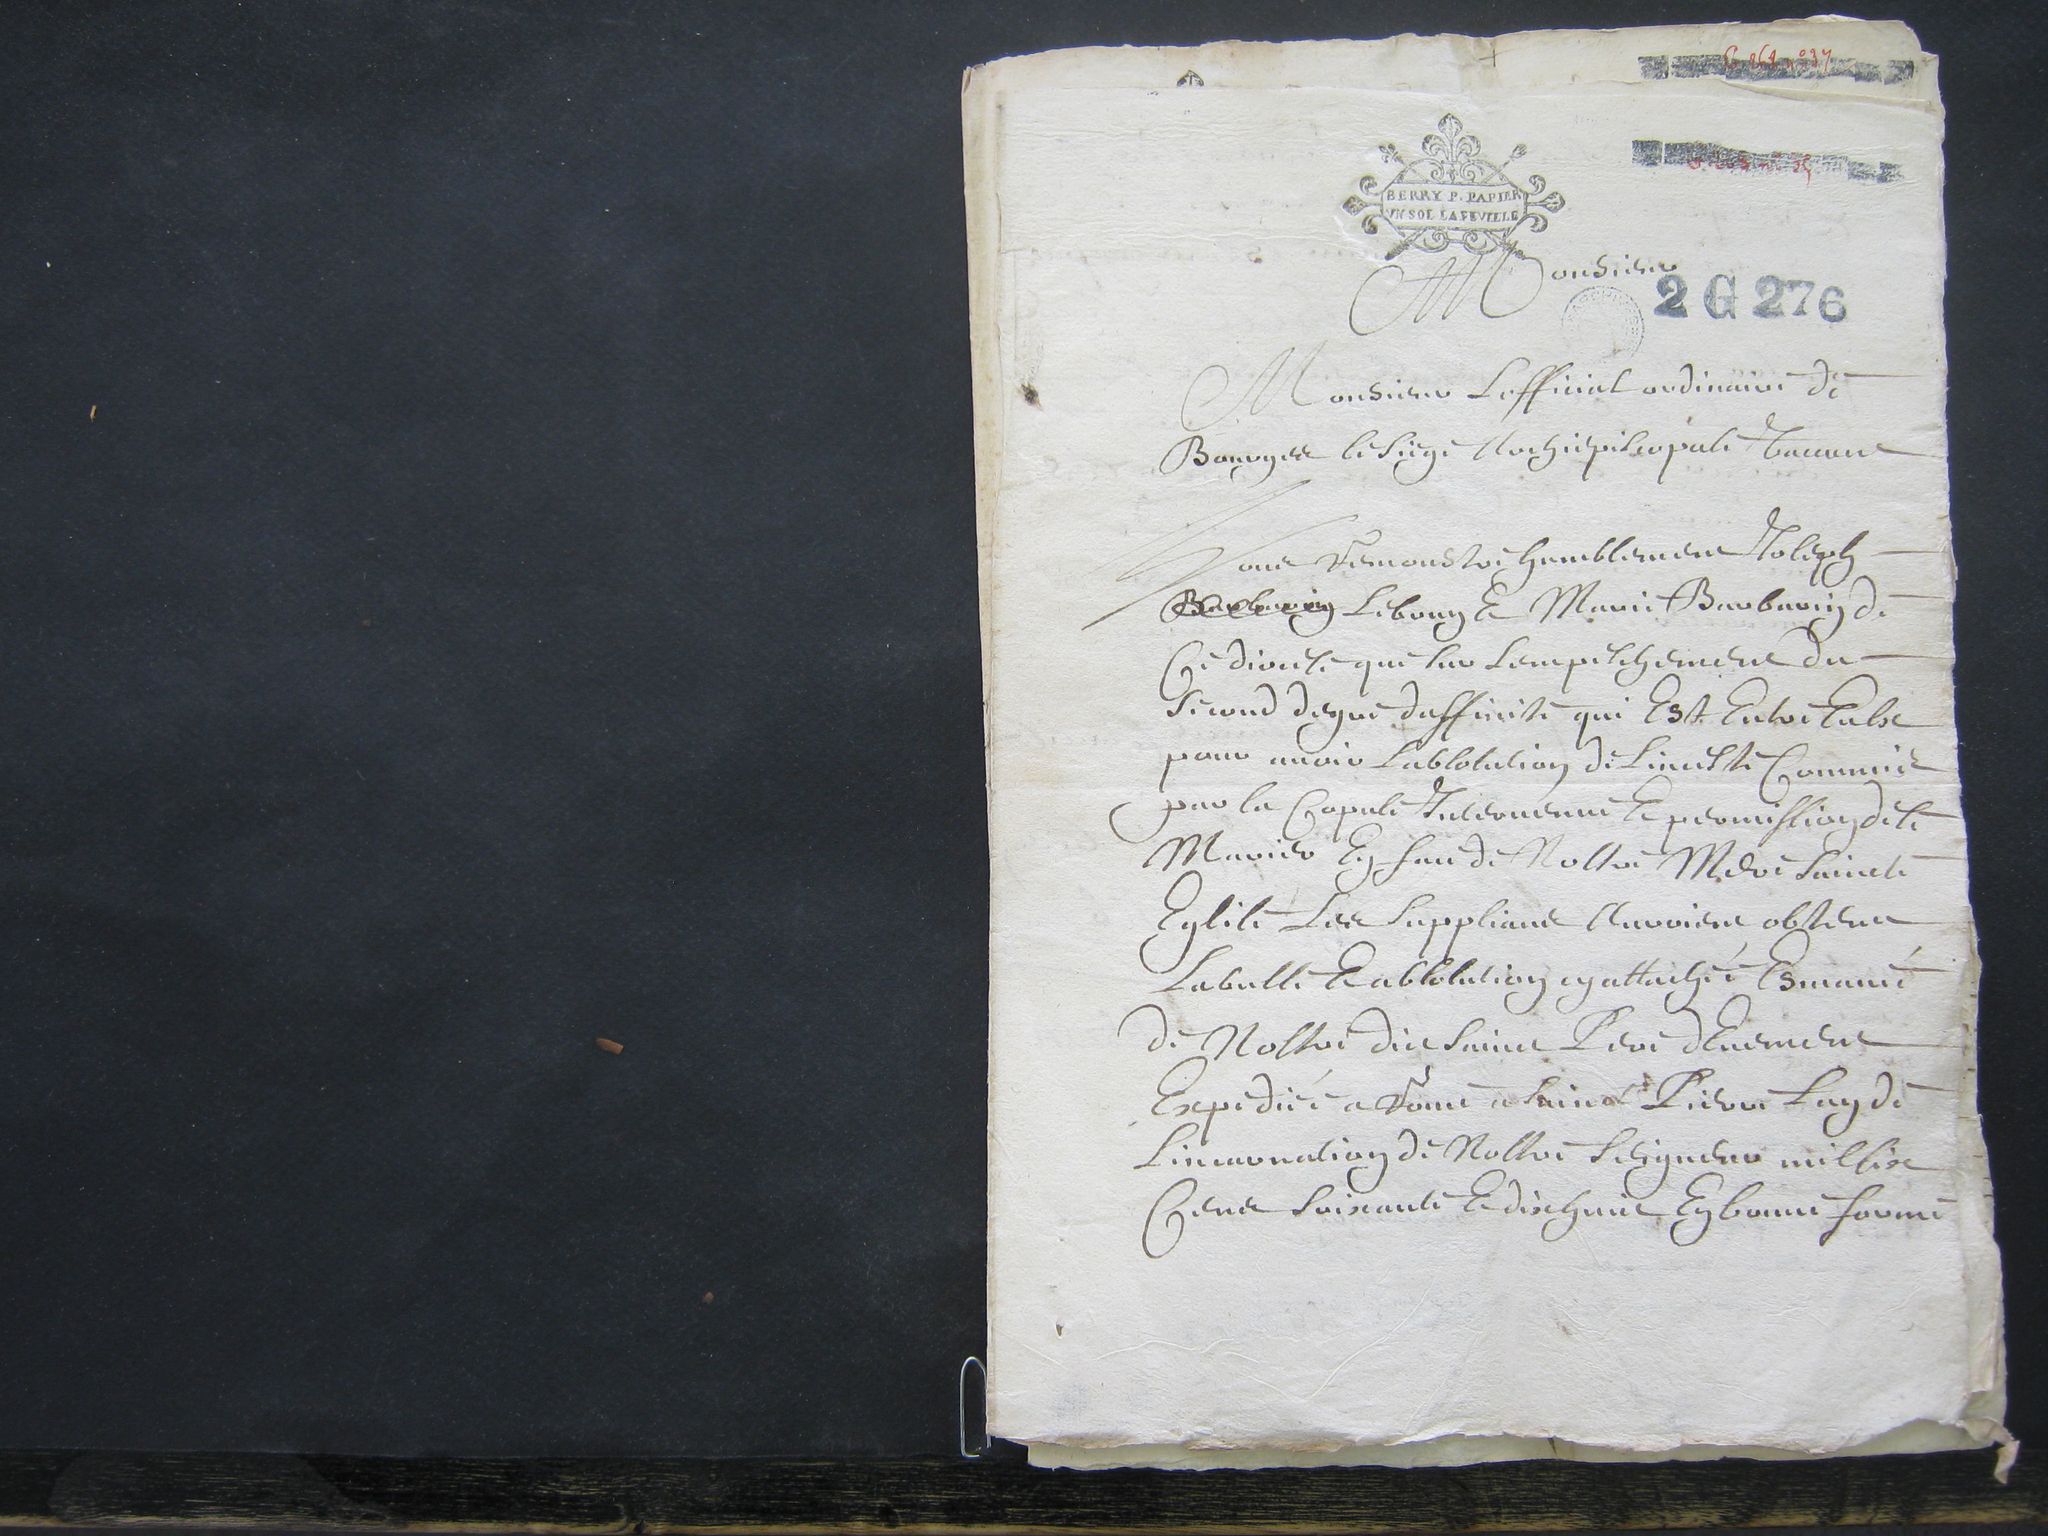 BERRY P. PAPIER
VN SOL LA FEVILLE
Monsieur
2 G 276
Monsieur Lofficial ordinaire de
Bourges le siege Archiepiscopale vacant
Vous remonstre humblement Joseph
Lebourg et Marie Barbarin de
Ce diocese que sur Lempeschement du
second degré daffinité qui Est Entre Eulx
pour avoir Labsolution de Linceste Commis
par la Copule Intervenue Et permission de se
Marier En face de Nostre Mere saincte
Eglise Les supplians Auroient obtenu
La bulle Et absolution cy attachée Esmanée
de Nostre dit sainct Pere deuement
Expediée a Rome a sainct Pierre Lan de
Lincarnation de Nostre Seigneur mil six
Cens soixante et dix huict En bonne forme